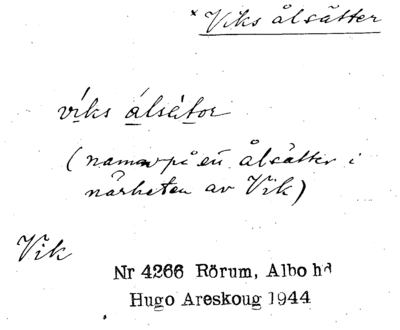 * Viks ålsätter
víks álsétor
(namn på en ålsätter i
närheten av Vik)
Vik
Nr 4266 Rörum, Albo hd
Hugo Areskoug 1944